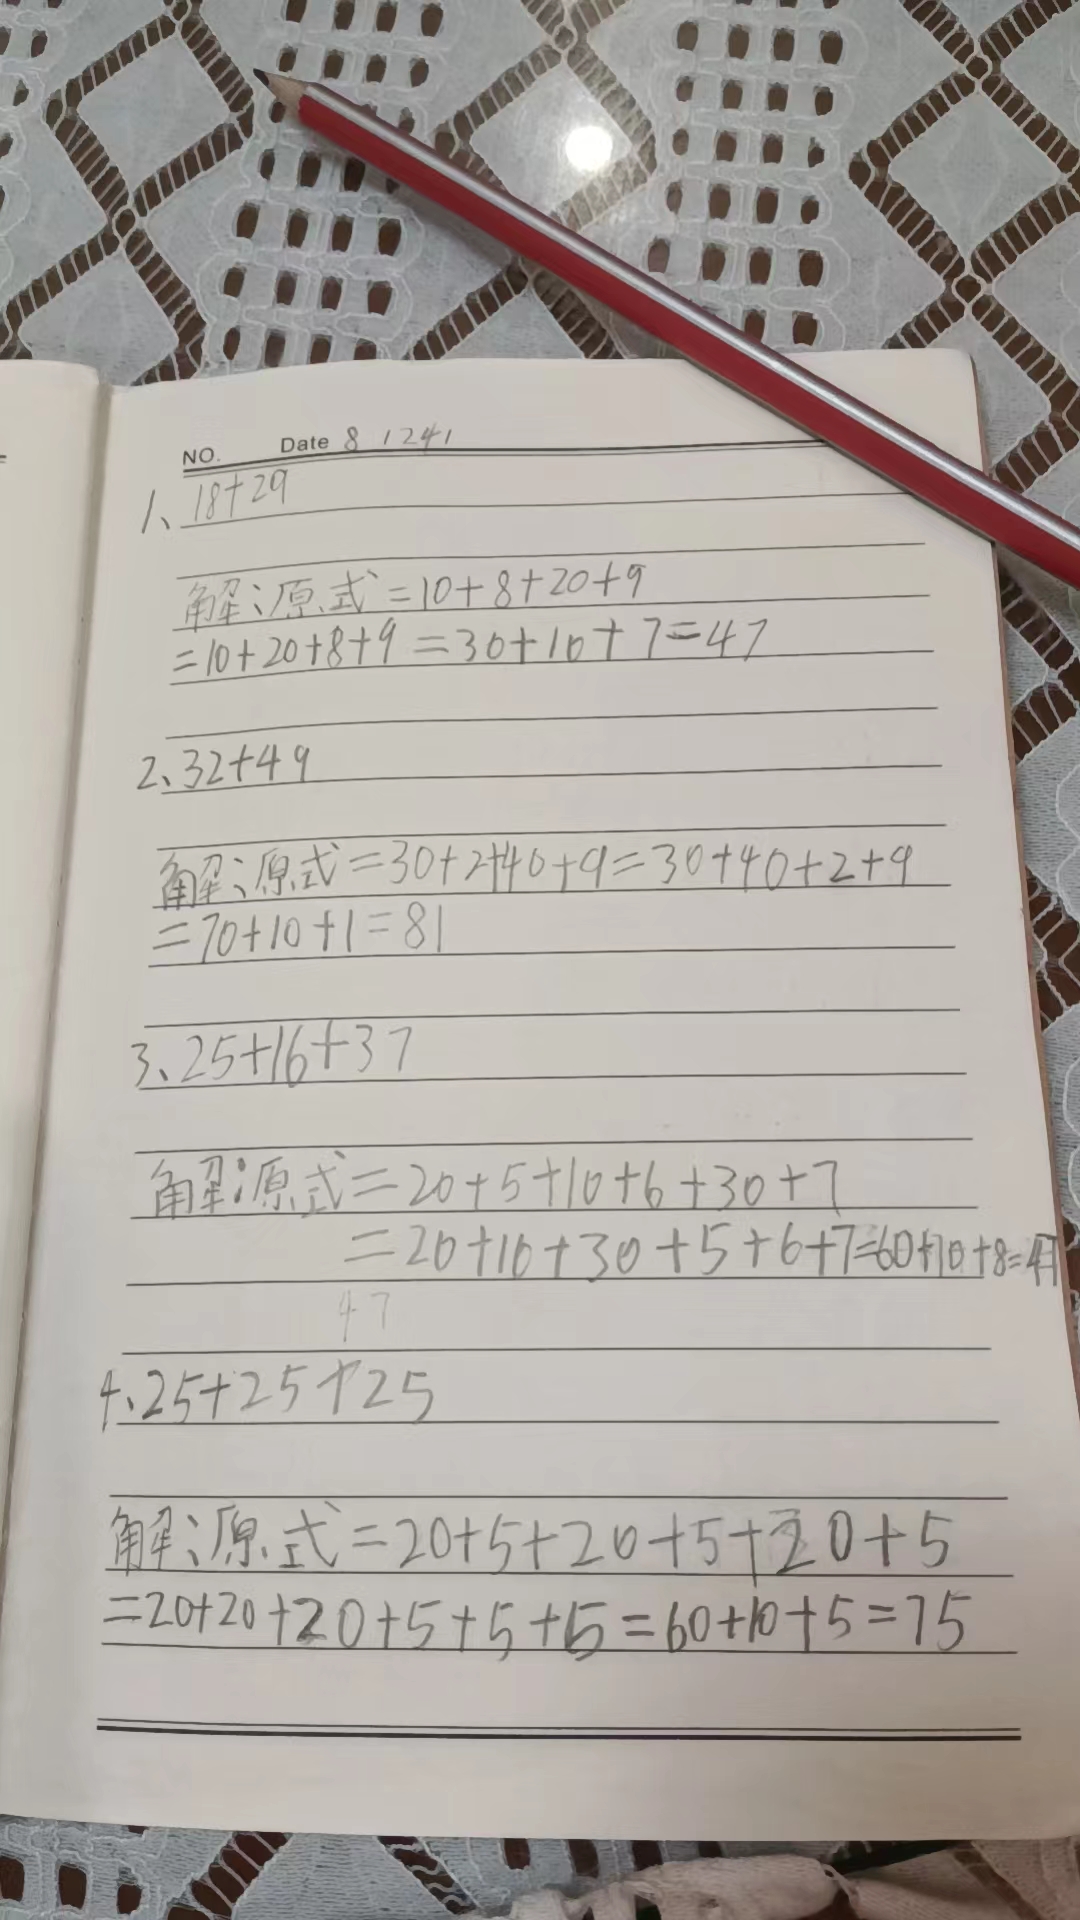 NO. Date 8 1241
1、18+29
解：原式=10+8+20+9
=10+20+8+9=30+10+7=47
2、32+49
解：原式=30+2+40+9=30+40+2+9
=70+10+1=81
3、25+16+37
解：原式=20+5+10+6+30+7
=20+10+30+5+6+7=60+10+8=47
47
4、25+25+25
解：原式=20+5+20+5+20+5
=20+20+20+5+5+5=60+10+5=75